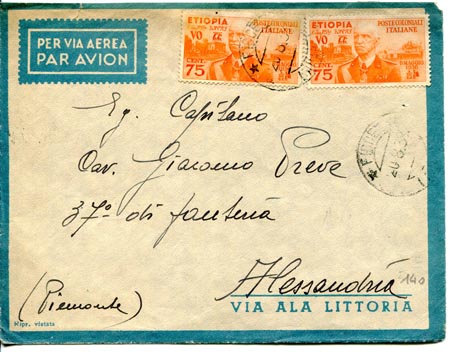 PER VIA AEREA
PAR AVION
ETIOPIA
POSTE COLONIALI
ITALIANE
CENT.
75
ETIOPIA
POSTE COLONIALI
ITALIANE
CENT.
75
9 MAGGIO
1936
Eg. Capitano
Cav. Giacomo Preve
37º di fanteria
Alessandria
(Piemonte)
VIA ALA LITTORIA
Ripr. vietata
5140